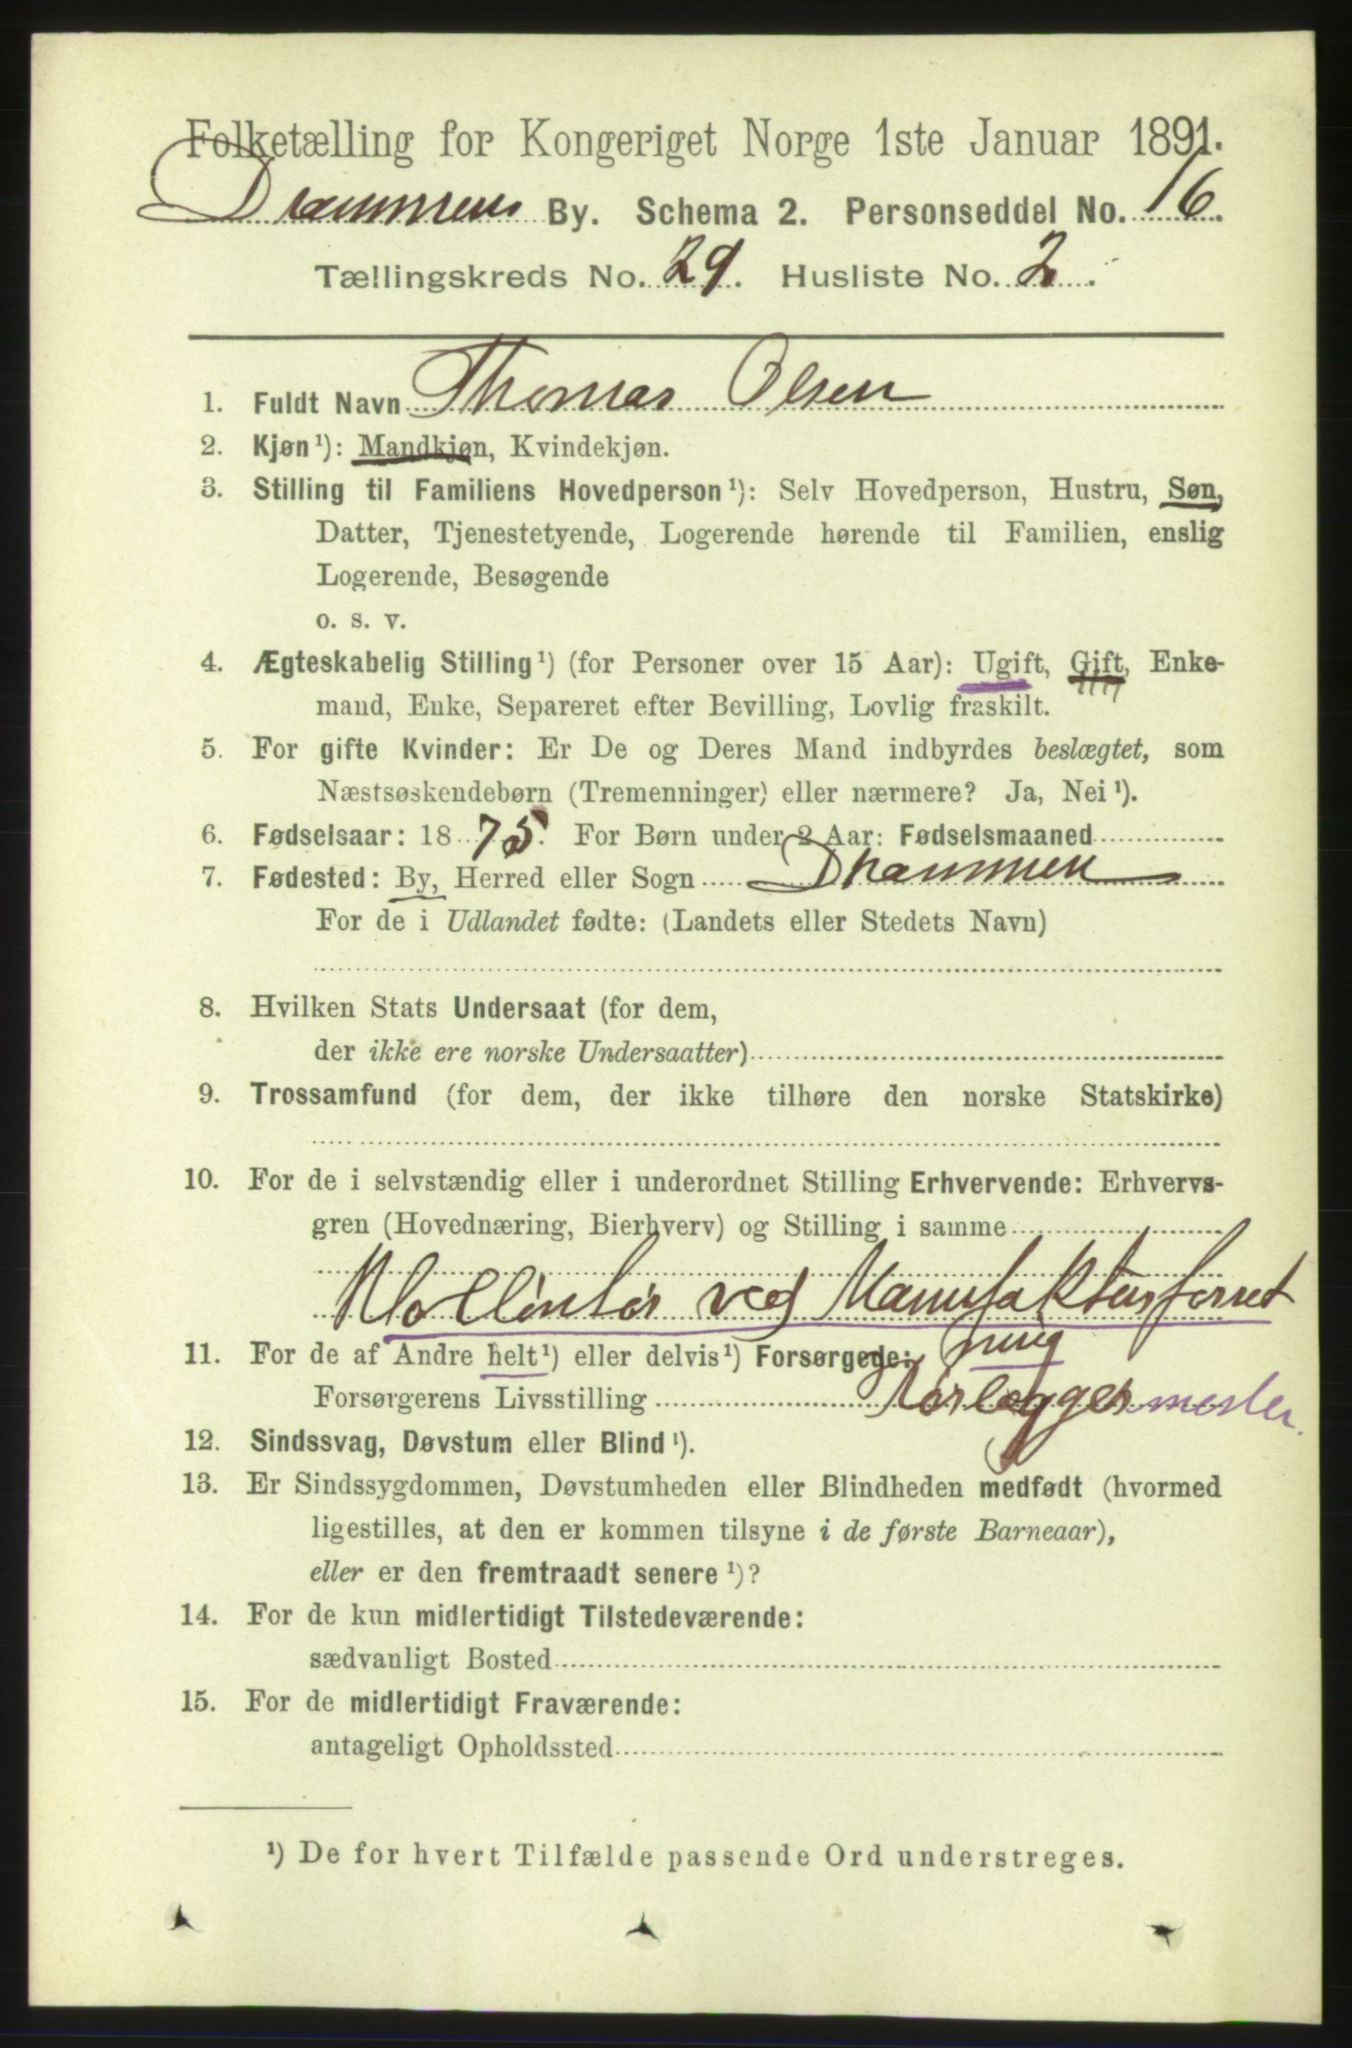 Folketælling for Kongeriget Norge 1ste Januar 1891.
Drammens By. Schema 2. Personseddel No. 16.
Tællingskreds No. 29. Husliste No. 2.
1. Fuldt Navn Thomas Olsen
2. Kjøn¹): Mandkjøn, Kvindekjøn.
3. Stilling til Familiens Hovedperson¹): Selv Hovedperson, Hustru, Søn,
Datter, Tjenestetyende, Logerende hørende til Familien, enslig
Logerende, Besøgende
o. s. v.
4. Ægteskabelig Stilling¹) (for Personer over 15 Aar): Ugift, Gift, Enke-
mand, Enke, Separeret efter Bevilling, Lovlig fraskilt.
5. For gifte Kvinder: Er De og Deres Mand indbyrdes beslægtet, som
Næstsøskendebørn (Tremenninger) eller nærmere? Ja, Nei¹).
6. Fødselsaar: 1875. For Børn under 2 Aar: Fødselsmaaned
7. Fødested: By, Herred eller Sogn Drammen
For de i Udlandet fødte: (Landets eller Stedets Navn)
8. Hvilken Stats Undersaat (for dem,
der ikke ere norske Undersaatter)
9. Trossamfund (for dem, der ikke tilhøre den norske Statskirke)
10. For de i selvstændig eller i underordnet Stilling Erhvervende: Erhvervs-
gren (Hovednæring, Bierhverv) og Stilling i samme
Volløntør ved Manufakturforret
ning
11. For de af Andre helt¹) eller delvis¹) Forsørgede:
Forsørgerens Livsstilling Rørlægger mester.
12. Sindssvag, Døvstum eller Blind¹).
13. Er Sindssygdommen, Døvstumheden eller Blindheden medfødt (hvormed
ligestilles, at den er kommen tilsyne i de første Barneaar),
eller er den fremtraadt senere¹)?
14. For de kun midlertidigt Tilstedeværende:
sædvanligt Bosted
15. For de midlertidigt Fraværende:
antageligt Opholdssted
¹) De for hvert Tilfælde passende Ord understreges.